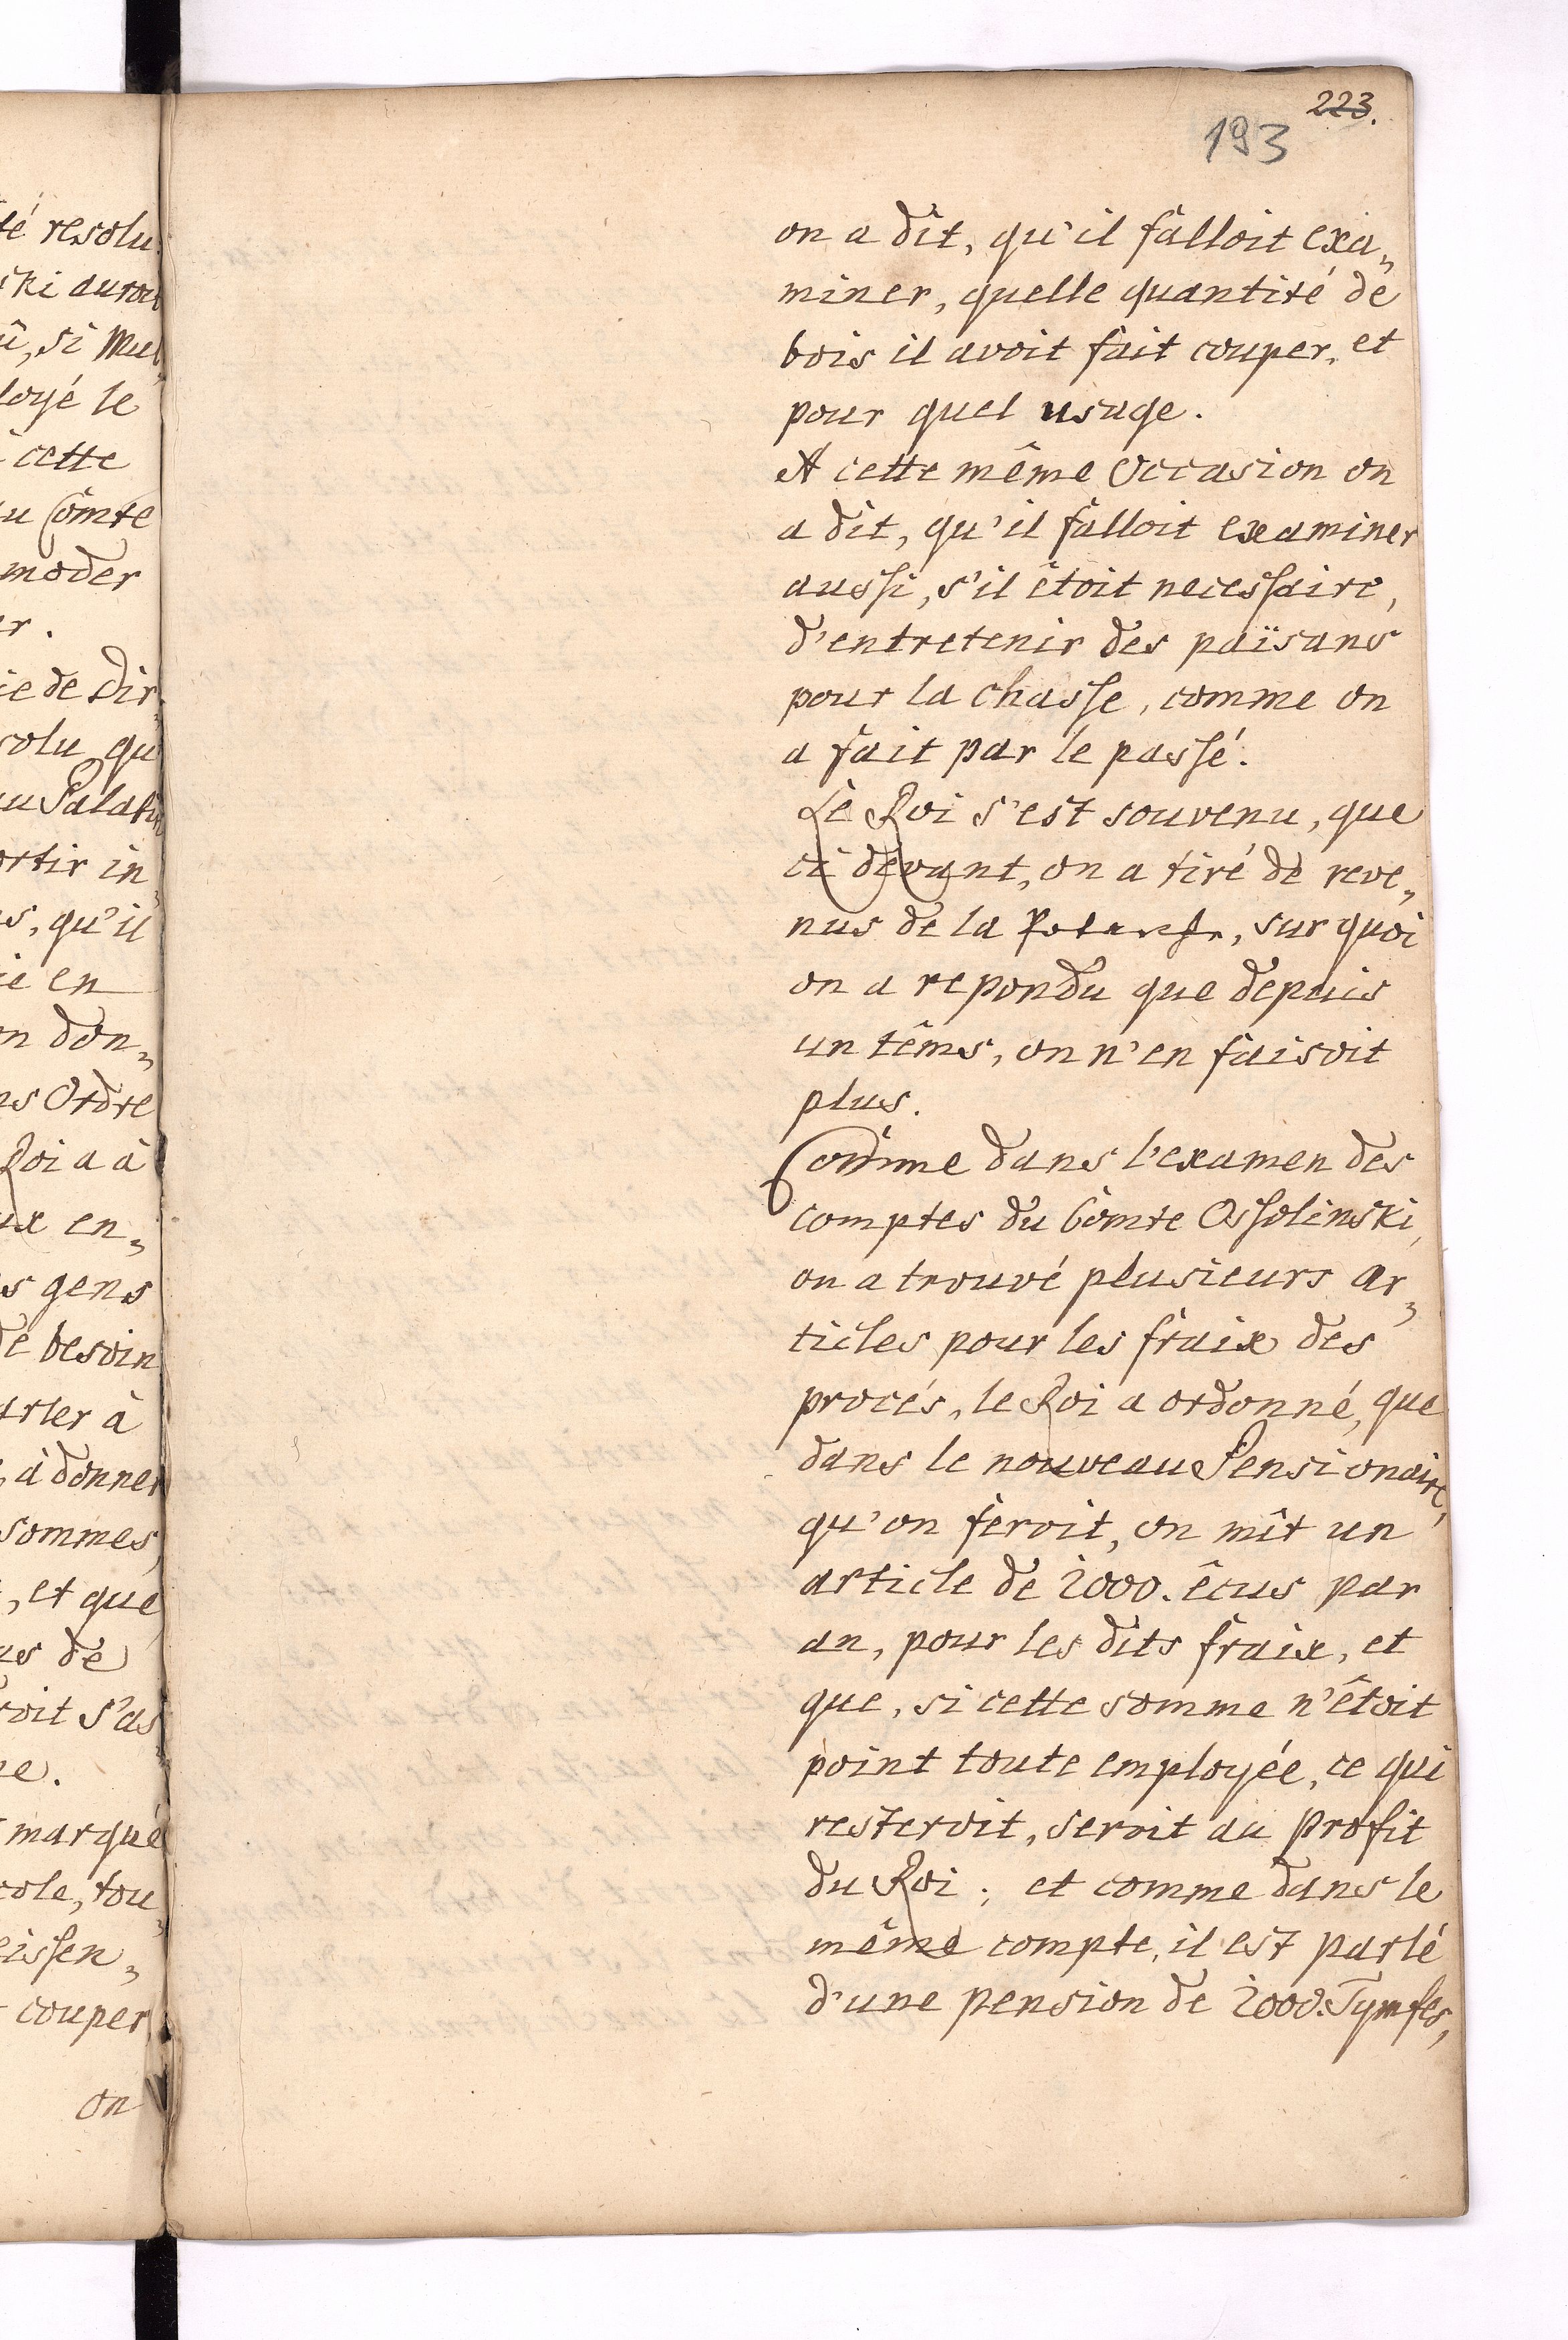 223.
193
té resolu
ski auroit
û, si Mul
loyé le
cette
u Comte
moder
er.
ie de Dir
solu qu
au Palatin
ortir in
s, qu'il
ie en
n don„
ns Ordre
Roi a à
ux en„
s gens
de besoin
arler à
à donner
sommes,
, et que
us de
roit s'as
ne.
marqué
cole, tou„
eissen„
couper
on
on a dît, qu'il fâlloit exa„
miner, quelle quantité de
bois il avoit fait couper, et
pour quel usage.
A cette même Occasion on
a dit, qu'il fâlloit examiner
aussi, s'il êtoit necessaire,
d'entretenir des païsans
pour la Chasse, comme on
a fait par le passé.
Le Roi s'est souvenu, que
ci devant, on a tiré de reve„
nus de la , sur quoi
on a repondu que depuis
un têms, on n'en faisoit
plus.
Comme dans l'examen des
comptes du Comte Ossolinski,
on a trouvé plusieurs ar„
ticles pour les fraix des
procés, le Roi a ordonné, que
dans le nouveau Pensionaire,
qu'on feroit, on mît un
article de 2000. êcus par
an, pour les dits fraix, et
que, si cette somme n'êtoit
point toute employée, ce qui
resteroit, seroit au profit
du Roi; et comme dans le
même compte, il est parlé
d'une pension de 2000. Tymfes,